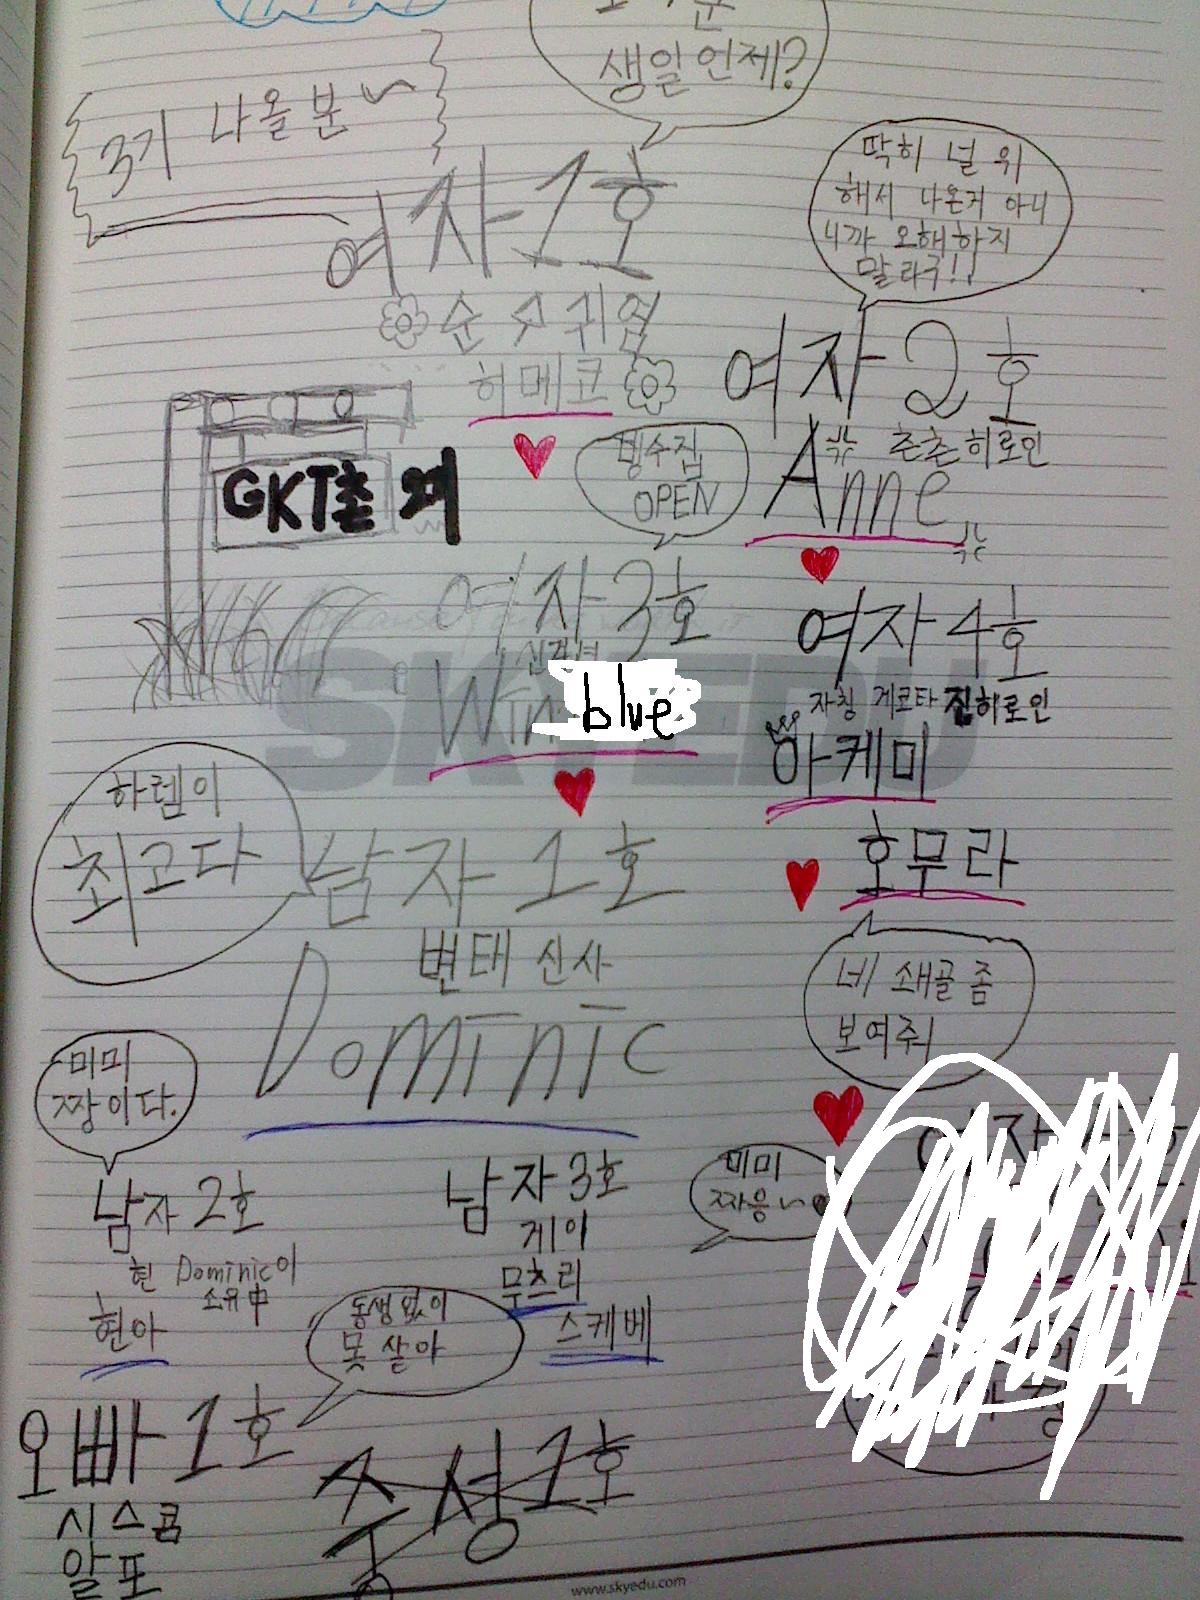 생일언제?
3기 나올분~
여자1호
순수귀염
히메코
딱히 널 위
해서 나온거 아니
니까 오해하지
말라구!!
여자2호
츤츤히로인
Anne
GKT촌 2기
빙수집
OPEN
여자3호
Win blue
여자4호
자칭 게코타 진히로인
아케미
호무라
네 쇄골 좀
보여줘
하렘이
최고다
남자1호
변태 신사
Dominic
미미
짱이다.
남자2호
현 Dominic이
소유中
현아
남자3호
게이
무츠리
스케베
미미
짜응~
동생없이
못 살아
오빠1호
시스콤
알포
중성1호
SKYEDU
www.skyedu.com